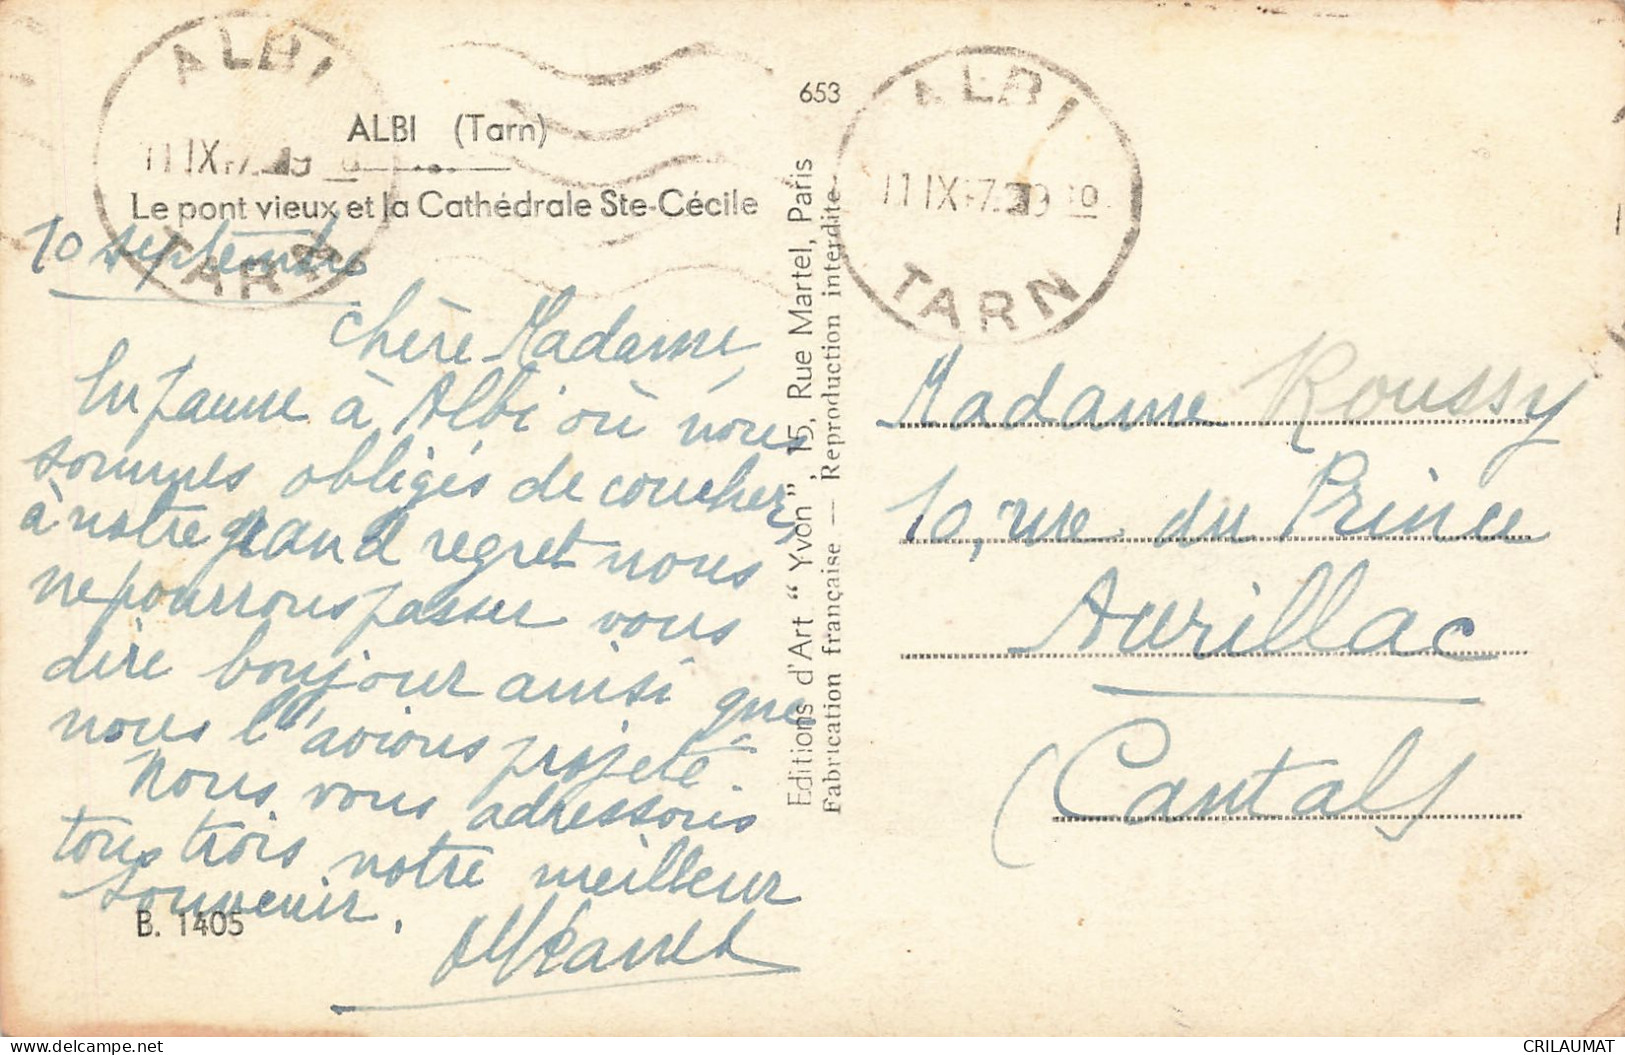 ALBI
ALBI (Tarn)
11 IX
Le pont vieux et la Cathédrale Ste-Cécile
TARN
10 septembre
Chère Madame,
En panne à Albi où nous
sommes obligés de coucher,
à notre grand regret nous
ne pourrons passer vous
dire bonjour ainsi que
nous l'avions projeté.
Nous vous adressons
tous trois notre meilleur
souvenir.
B. 1405
653
Editions d'Art "Yvon", 15, Rue Martel, Paris
Fabrication française — Reproduction interdite
ALBI
11 IX
TARN
Madame Roussy
10, rue du Prince
Aurillac
(Cantal)
delcampe.net
CRILAUMAT